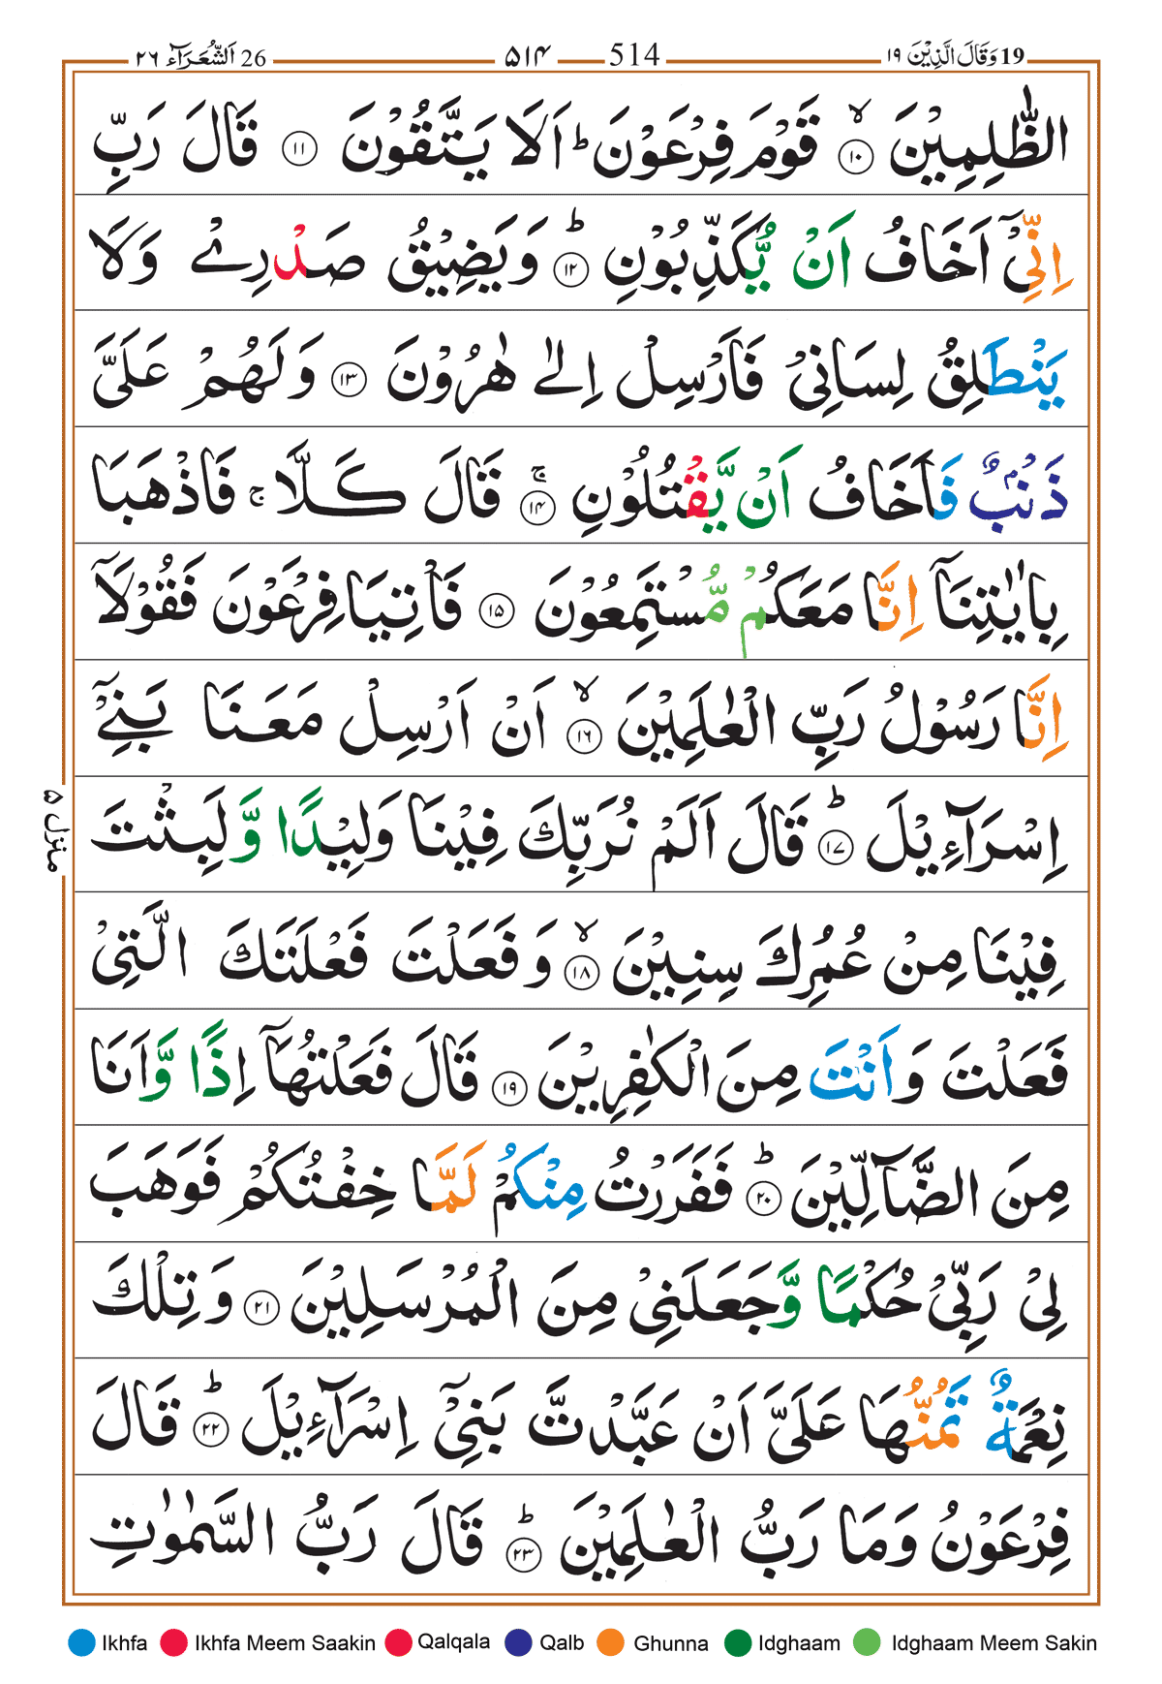 19 وَقَالَ الَّذِيْنَ ١٩ 514 ۵۱۴ 26 اَلشُّعَرَآء ٢٦
الظّٰلِمِيْنَ ۙ‏ ﴿۱۰﴾ قَوْمَ فِرْعَوْنَ‌ؕ اَلَا يَتَّقُوْنَ‏ ﴿۱۱﴾ قَالَ رَبِّ
اِنِّىْۤ اَخَافُ اَنْ يُّكَذِّبُوْنِؕ‏ ﴿۱۲﴾ وَيَضِيْقُ صَدْرِىْ وَلَا
يَنْطَلِقُ لِسَانِىْ فَاَرْسِلْ اِلٰى هٰرُوْنَ‏ ﴿۱۳﴾ وَلَهُمْ عَلَىَّ
ذَنْۢبٌ فَاَخَافُ اَنْ يَّقْتُلُوْنِ‌ۚ‏ ﴿۱۴﴾ قَالَ كَلَّا‌ ۚ فَاذْهَبَا
بِاٰيٰتِنَآ‌ اِنَّا مَعَكُمْ مُّسْتَمِعُوْنَ‏ ﴿۱۵﴾ فَاْتِيَا فِرْعَوْنَ فَقُوْلَاۤ
اِنَّا رَسُوْلُ رَبِّ الْعٰلَمِيْنَۙ‏ ﴿۱۶﴾ اَنْ اَرْسِلْ مَعَنَا بَنِىْۤ
اِسْرَآءِيْلَؕ‏ ﴿۱۷﴾ قَالَ اَلَمْ نُرَبِّكَ فِيْنَا وَلِيْدًا وَّلَبِثْتَ
فِيْنَا مِنْ عُمُرِكَ سِنِيْنَۙ‏ ﴿۱۸﴾ وَفَعَلْتَ فَعْلَتَكَ الَّتِىْ
فَعَلْتَ وَاَنْتَ مِنَ الْكٰفِرِيْنَ‏ ﴿۱۹﴾ قَالَ فَعَلْتُهَاۤ اِذًا وَّاَنَا
مِنَ الضَّآلِّيْنَؕ‏ ﴿۲۰﴾ فَفَرَرْتُ مِنْكُمْ لَمَّا خِفْتُكُمْ فَوَهَبَ
لِىْ رَبِّىْ حُكْمًا وَّجَعَلَنِىْ مِنَ الْمُرْسَلِيْنَ‏ ﴿۲۱﴾ وَتِلْكَ
نِعْمَةٌ تَمُنُّهَا عَلَىَّ اَنْ عَبَّدْتَّ بَنِىْۤ اِسْرَآءِيْلَؕ‏ ﴿۲۲﴾ قَالَ
فِرْعَوْنُ وَمَا رَبُّ الْعٰلَمِيْنَؕ‏ ﴿۲۳﴾ قَالَ رَبُّ السَّمٰوٰتِ
منزل ۵
Ikhfa Ikhfa Meem Saakin Qalqala Qalb Ghunna Idghaam Idghaam Meem Sakin